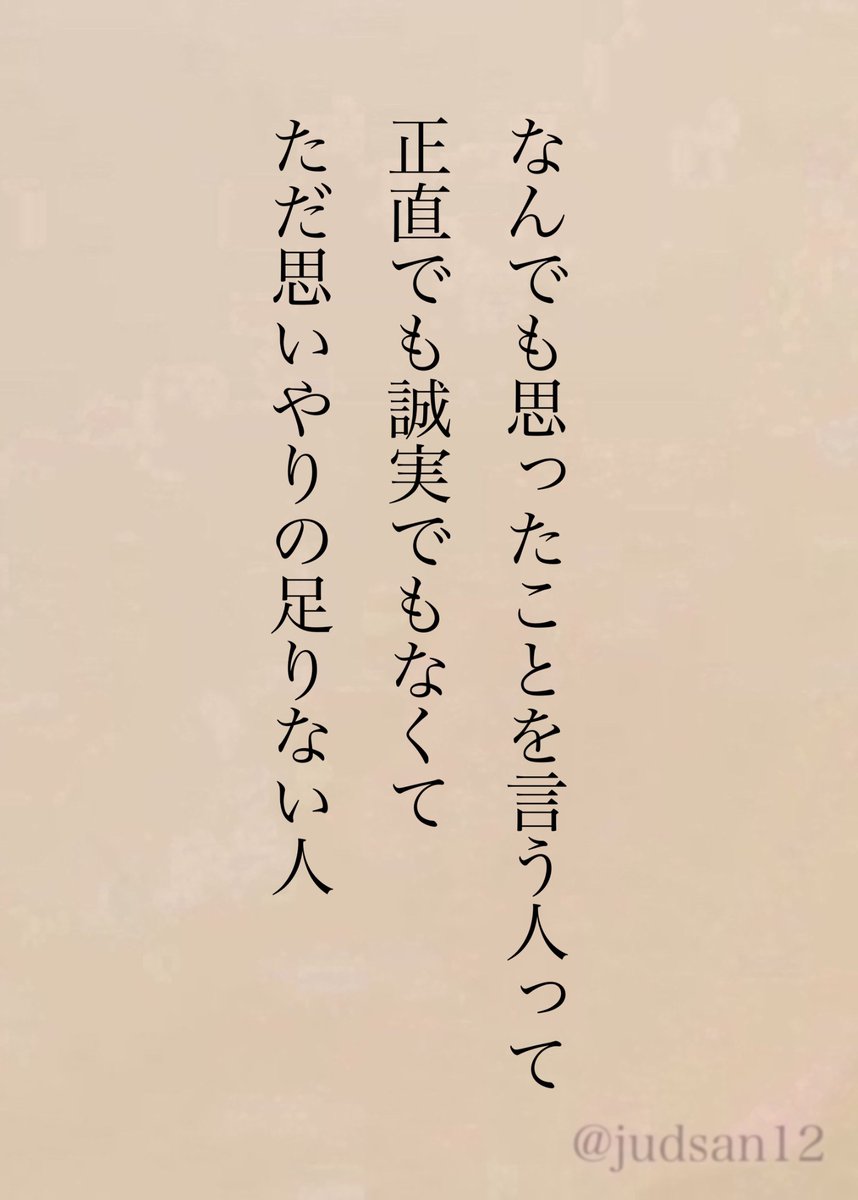 なんでも思ったことを言う人って
正直でも誠実でもなくて
ただ思いやりの足りない人
@judsan12